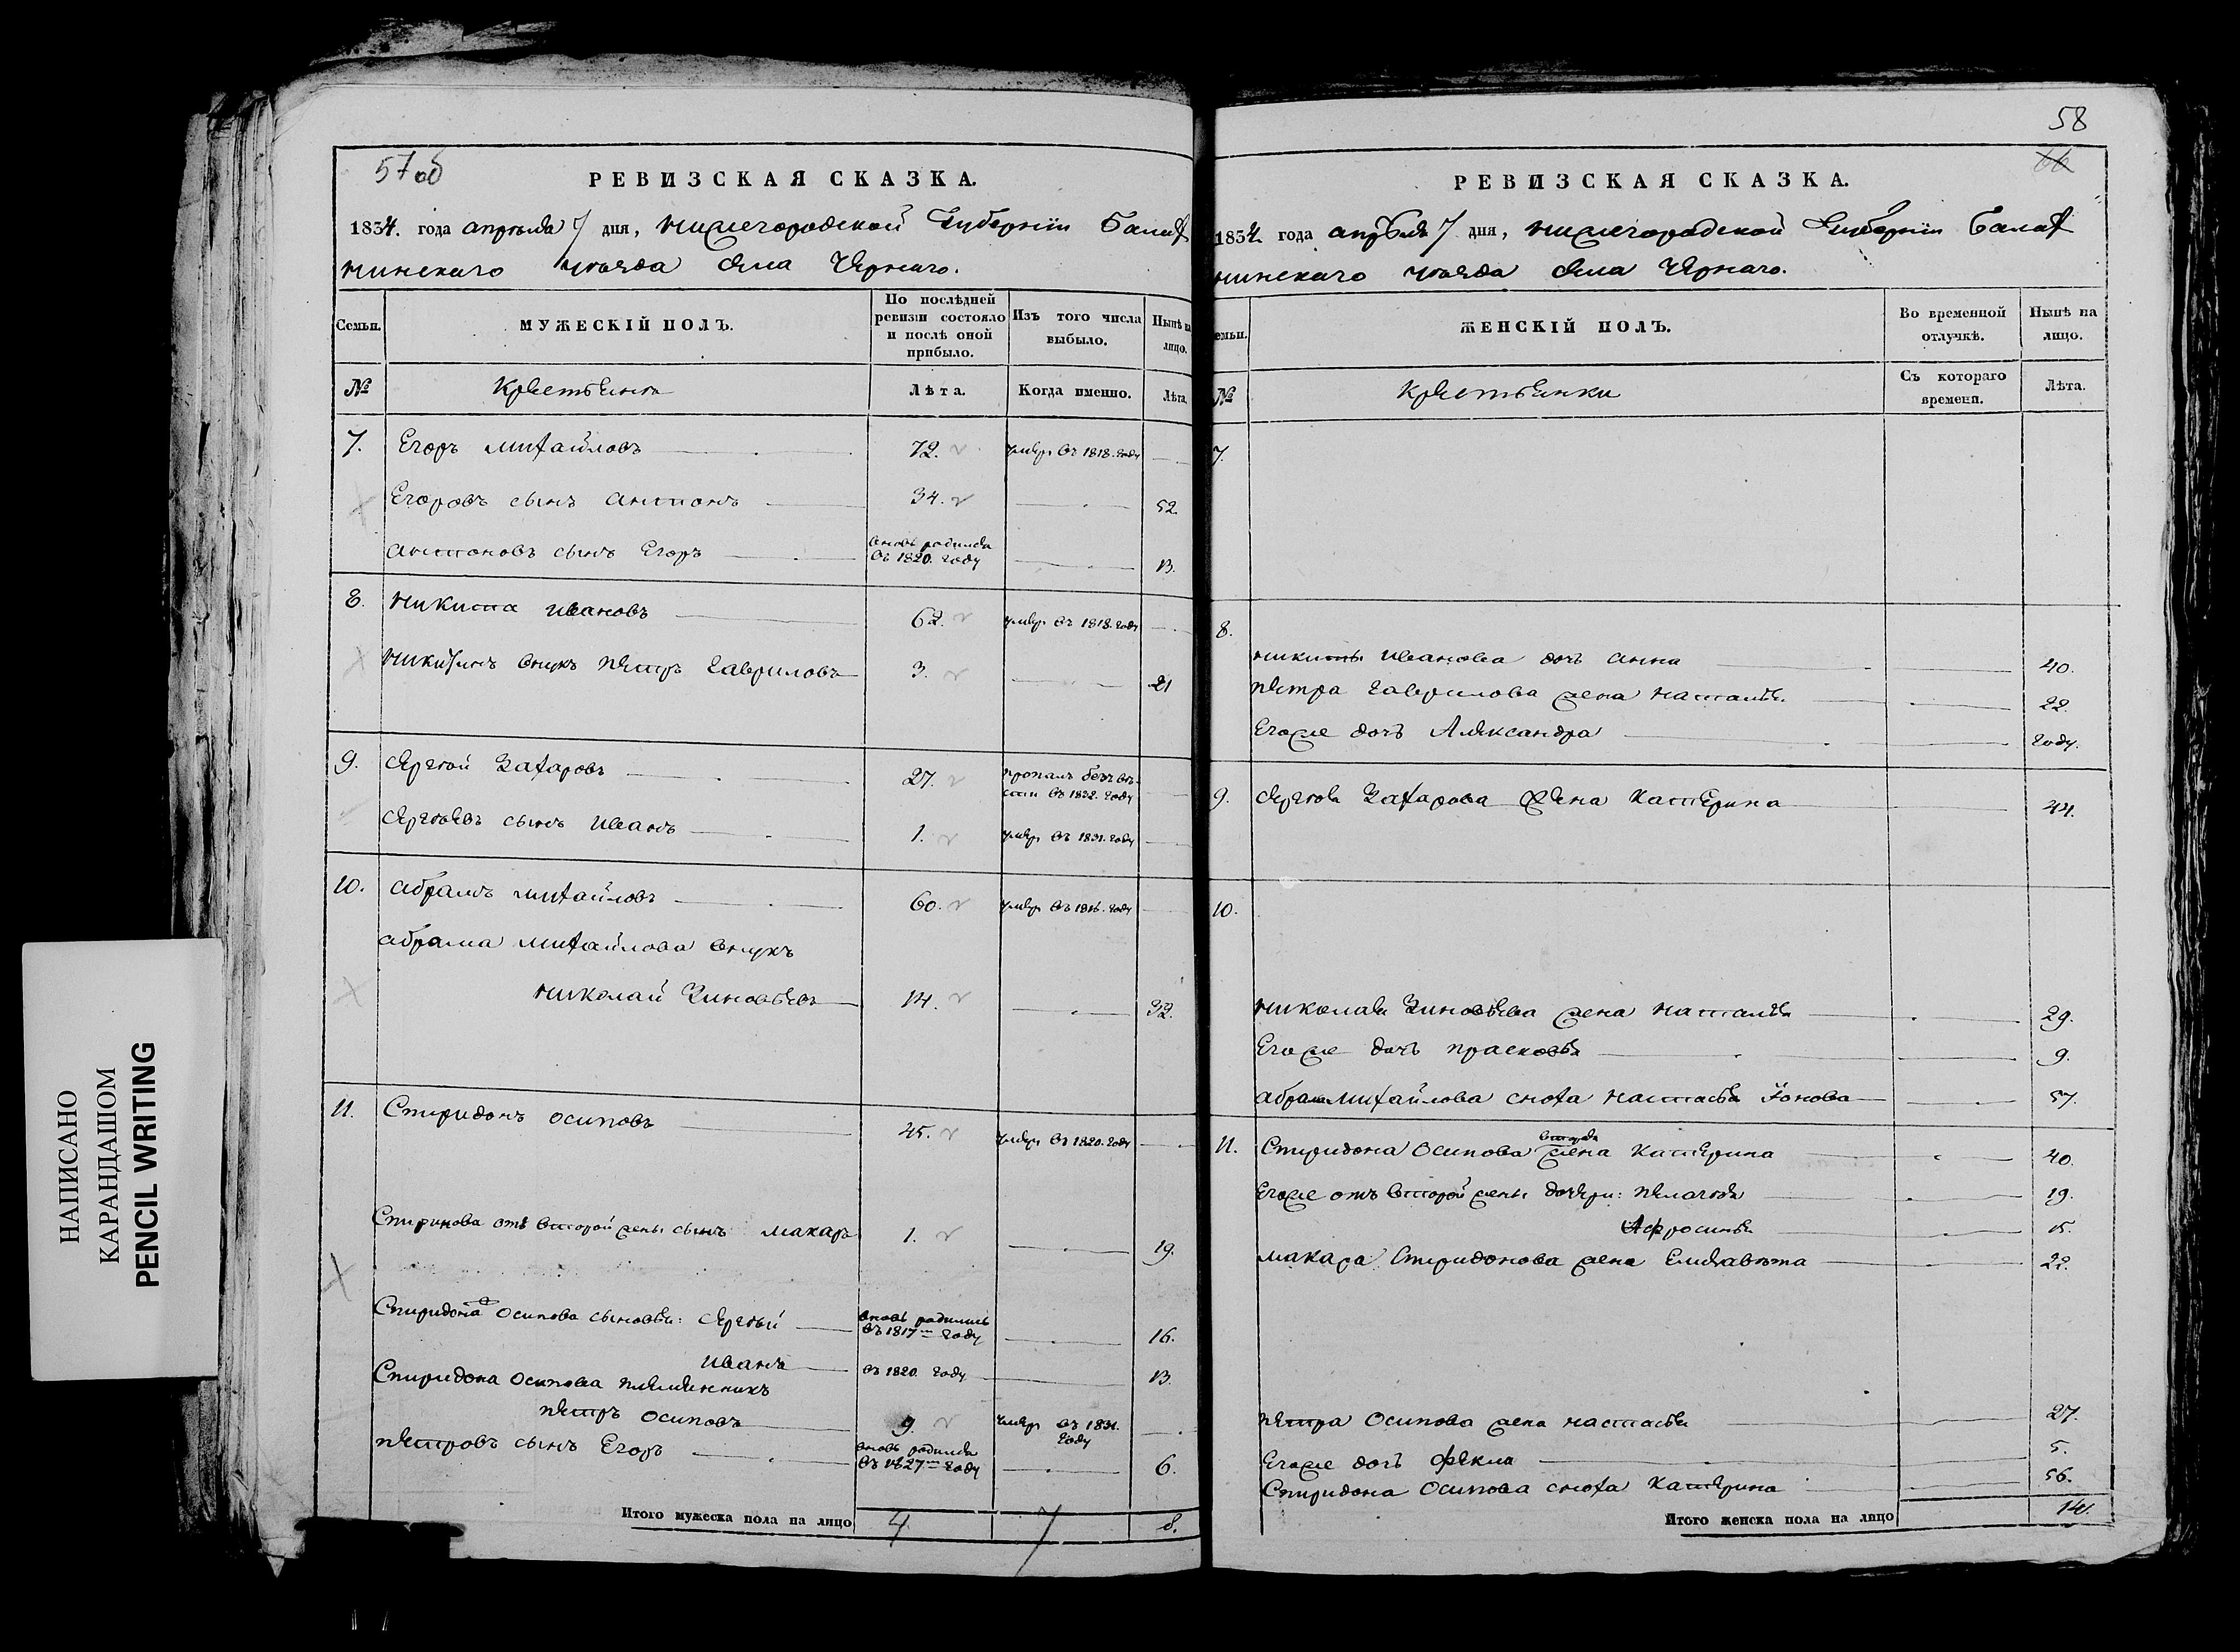 57 об
РЕВИЗСКАЯ СКАЗКА.
1834. года апреля 7 дня, Нижегородской Губернiи Балах
нинскаго уѣзда села Чернаго.
Семьи.
МУЖЕСКIЙ ПОЛЪ.
По послѣдней ревизiи состояло и послѣ оной прибыло.
Изъ того числа выбыло.
Нынѣ на лицо.
№
Крестьяня
Лѣта.
Когда именно.
Лѣта.
7. Егоръ Михайловъ 72. умеръ въ 1818. году
Егоровъ сынъ Антонъ 34. 52.
Антоновъ сынъ Егоръ вновь родился въ 1820. году 13.
8. Никита Ивановъ 62. умеръ въ 1818. году
Никитинъ внукъ Петръ Гавриловъ 3. 21
9. Сергѣй Захаровъ 27. пропалъ безъ вѣсти въ 1822. году
Сергѣевъ сынъ Иванъ 1. умеръ въ 1831. году
10. Абрамъ Михайловъ 60. умеръ въ 1816. году
Абрама Михайлова внукъ
Николай Зиновьевъ 14. 32.
11. Спиридонъ Осиповъ 45. умеръ въ 1820. году
Спиридонова отъ второй жены сынъ Макаръ 1. 19.
Спиридона Осипова сыновья: Сергѣй вновь родились въ 1817 году 16.
Иванъ въ 1820 году 13.
Спиридона Осипова племянникъ
Петръ Осиповъ 9. умеръ въ 1831. году
Петровъ сынъ Егоръ вновь родился въ 1827 году 6.
Итого мужеска пола на лицо 7 8.
58
66
РЕВИЗСКАЯ СКАЗКА.
1834 года апрѣля 7 дня, Нижегородской Губернiи Балах
нинскаго уѣзда села Чернаго.
Семьи.
ЖЕНСКIЙ ПОЛЪ.
Во временной отлучкѣ.
Нынѣ на лицо.
№
Крестьянки
Съ котораго времени.
Лѣта.
7.
8.
Никиты Иванова дочь Анна 40.
Петра Гаврилова жена Наталья 22.
Егоже дочь Александра году.
9. Сергѣя Захарова жена Катерина 44.
10.
Николая Зиновьева жена Наталья 29.
Егоже дочь Прасковья 9.
Абрама Михайлова сноха Настасья Iонова 57.
11. Спиридона Осипова вторая жена Катерина 40.
Егоже отъ второй жены дочери: Пелагѣя 19.
Афросинья 15.
Макара Спиридонова жена Елизавѣта 22.
Петра Осипова жена Настасья 27.
Егоже дочь Фекла 5.
Спиридона Осипова сноха Катерина 56.
Итого женска пола на лицо 14.
НАПИСАНО
КАРАНДАШОМ
PENCIL WRITING